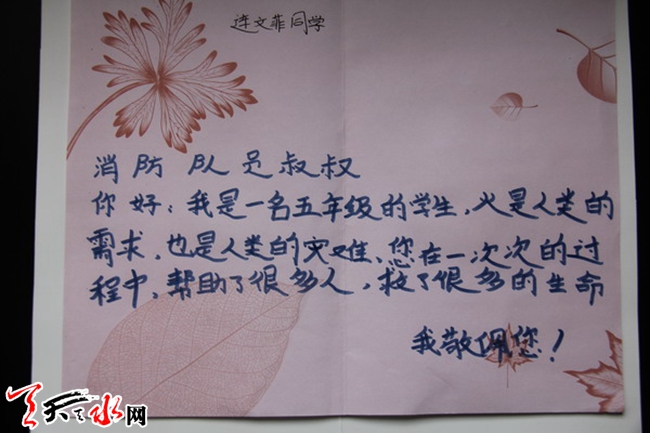 连文菲同学
消防队员叔叔
你好：我是一名五年级的学生，火是人类的
需求，也是人类的灾难、您在一次次的过
程中，帮助了很多人，救了很多的生命
我敬佩您！
天天天水网